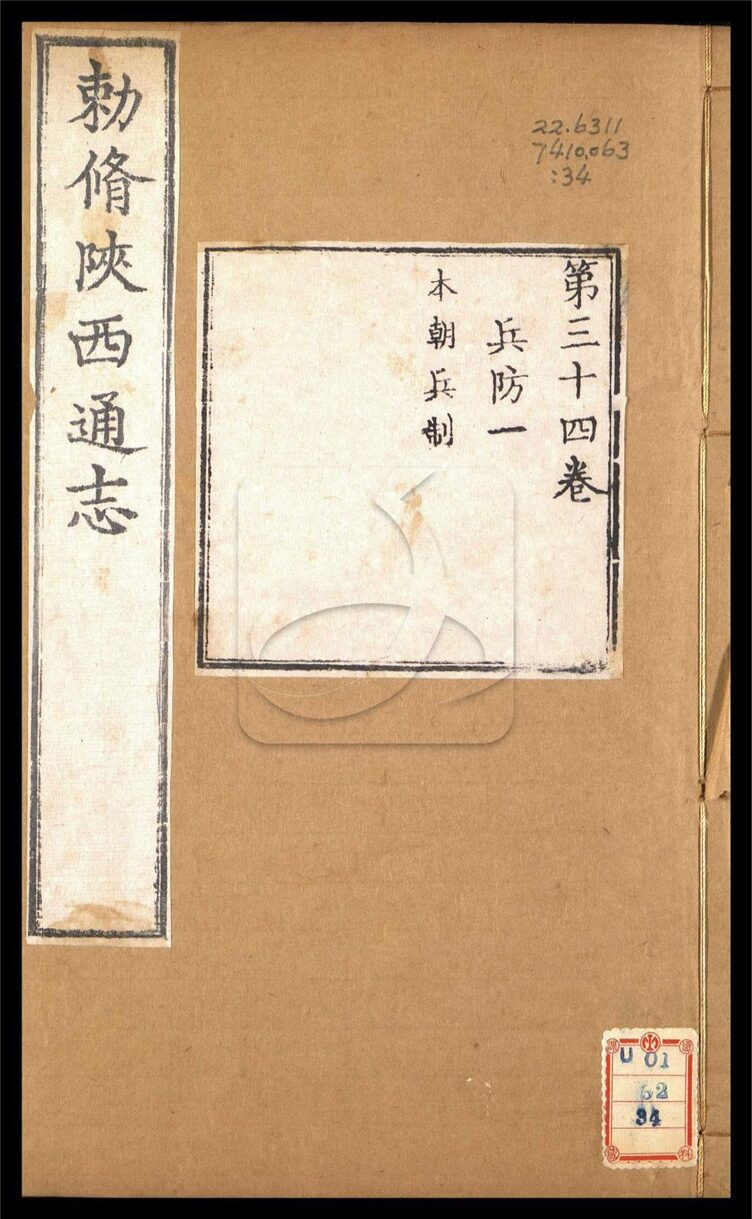 勅脩陝西通志
第三十四卷
兵防一
本朝兵制
22.6311
7410.063
:34
U 01
52
34